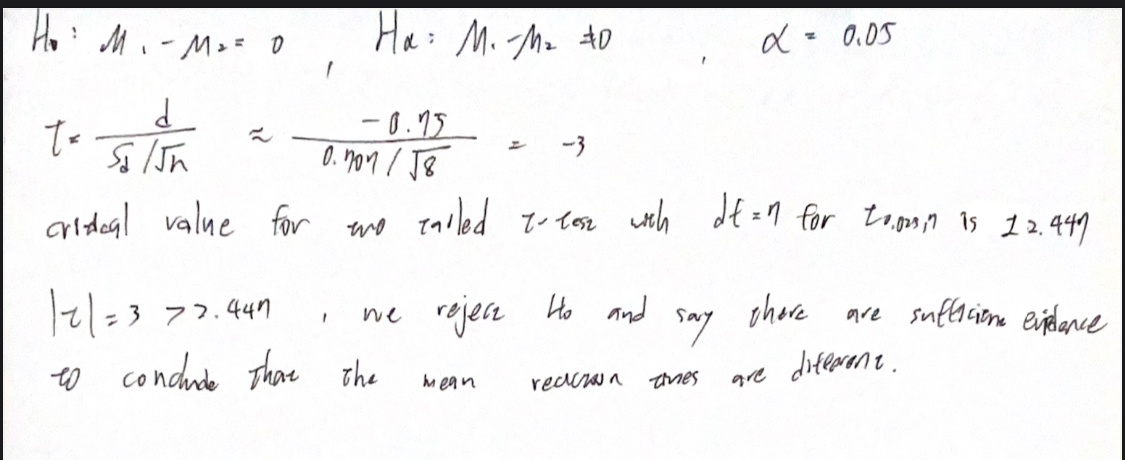 H₀: M₁-M₂ = 0 , Hα: M₁-M₂ ≠0 , α = 0.05
t = d / (Sd/√n) ≈ -0.75 / (0.707/√8) = -3
critical value for two tailed t-test with df=7 for t0.025,7 is ±2.447
|t|=3 >2.447 , we reject Ho and say there are sufficient evidence
to conclude that the mean reaction times are different.